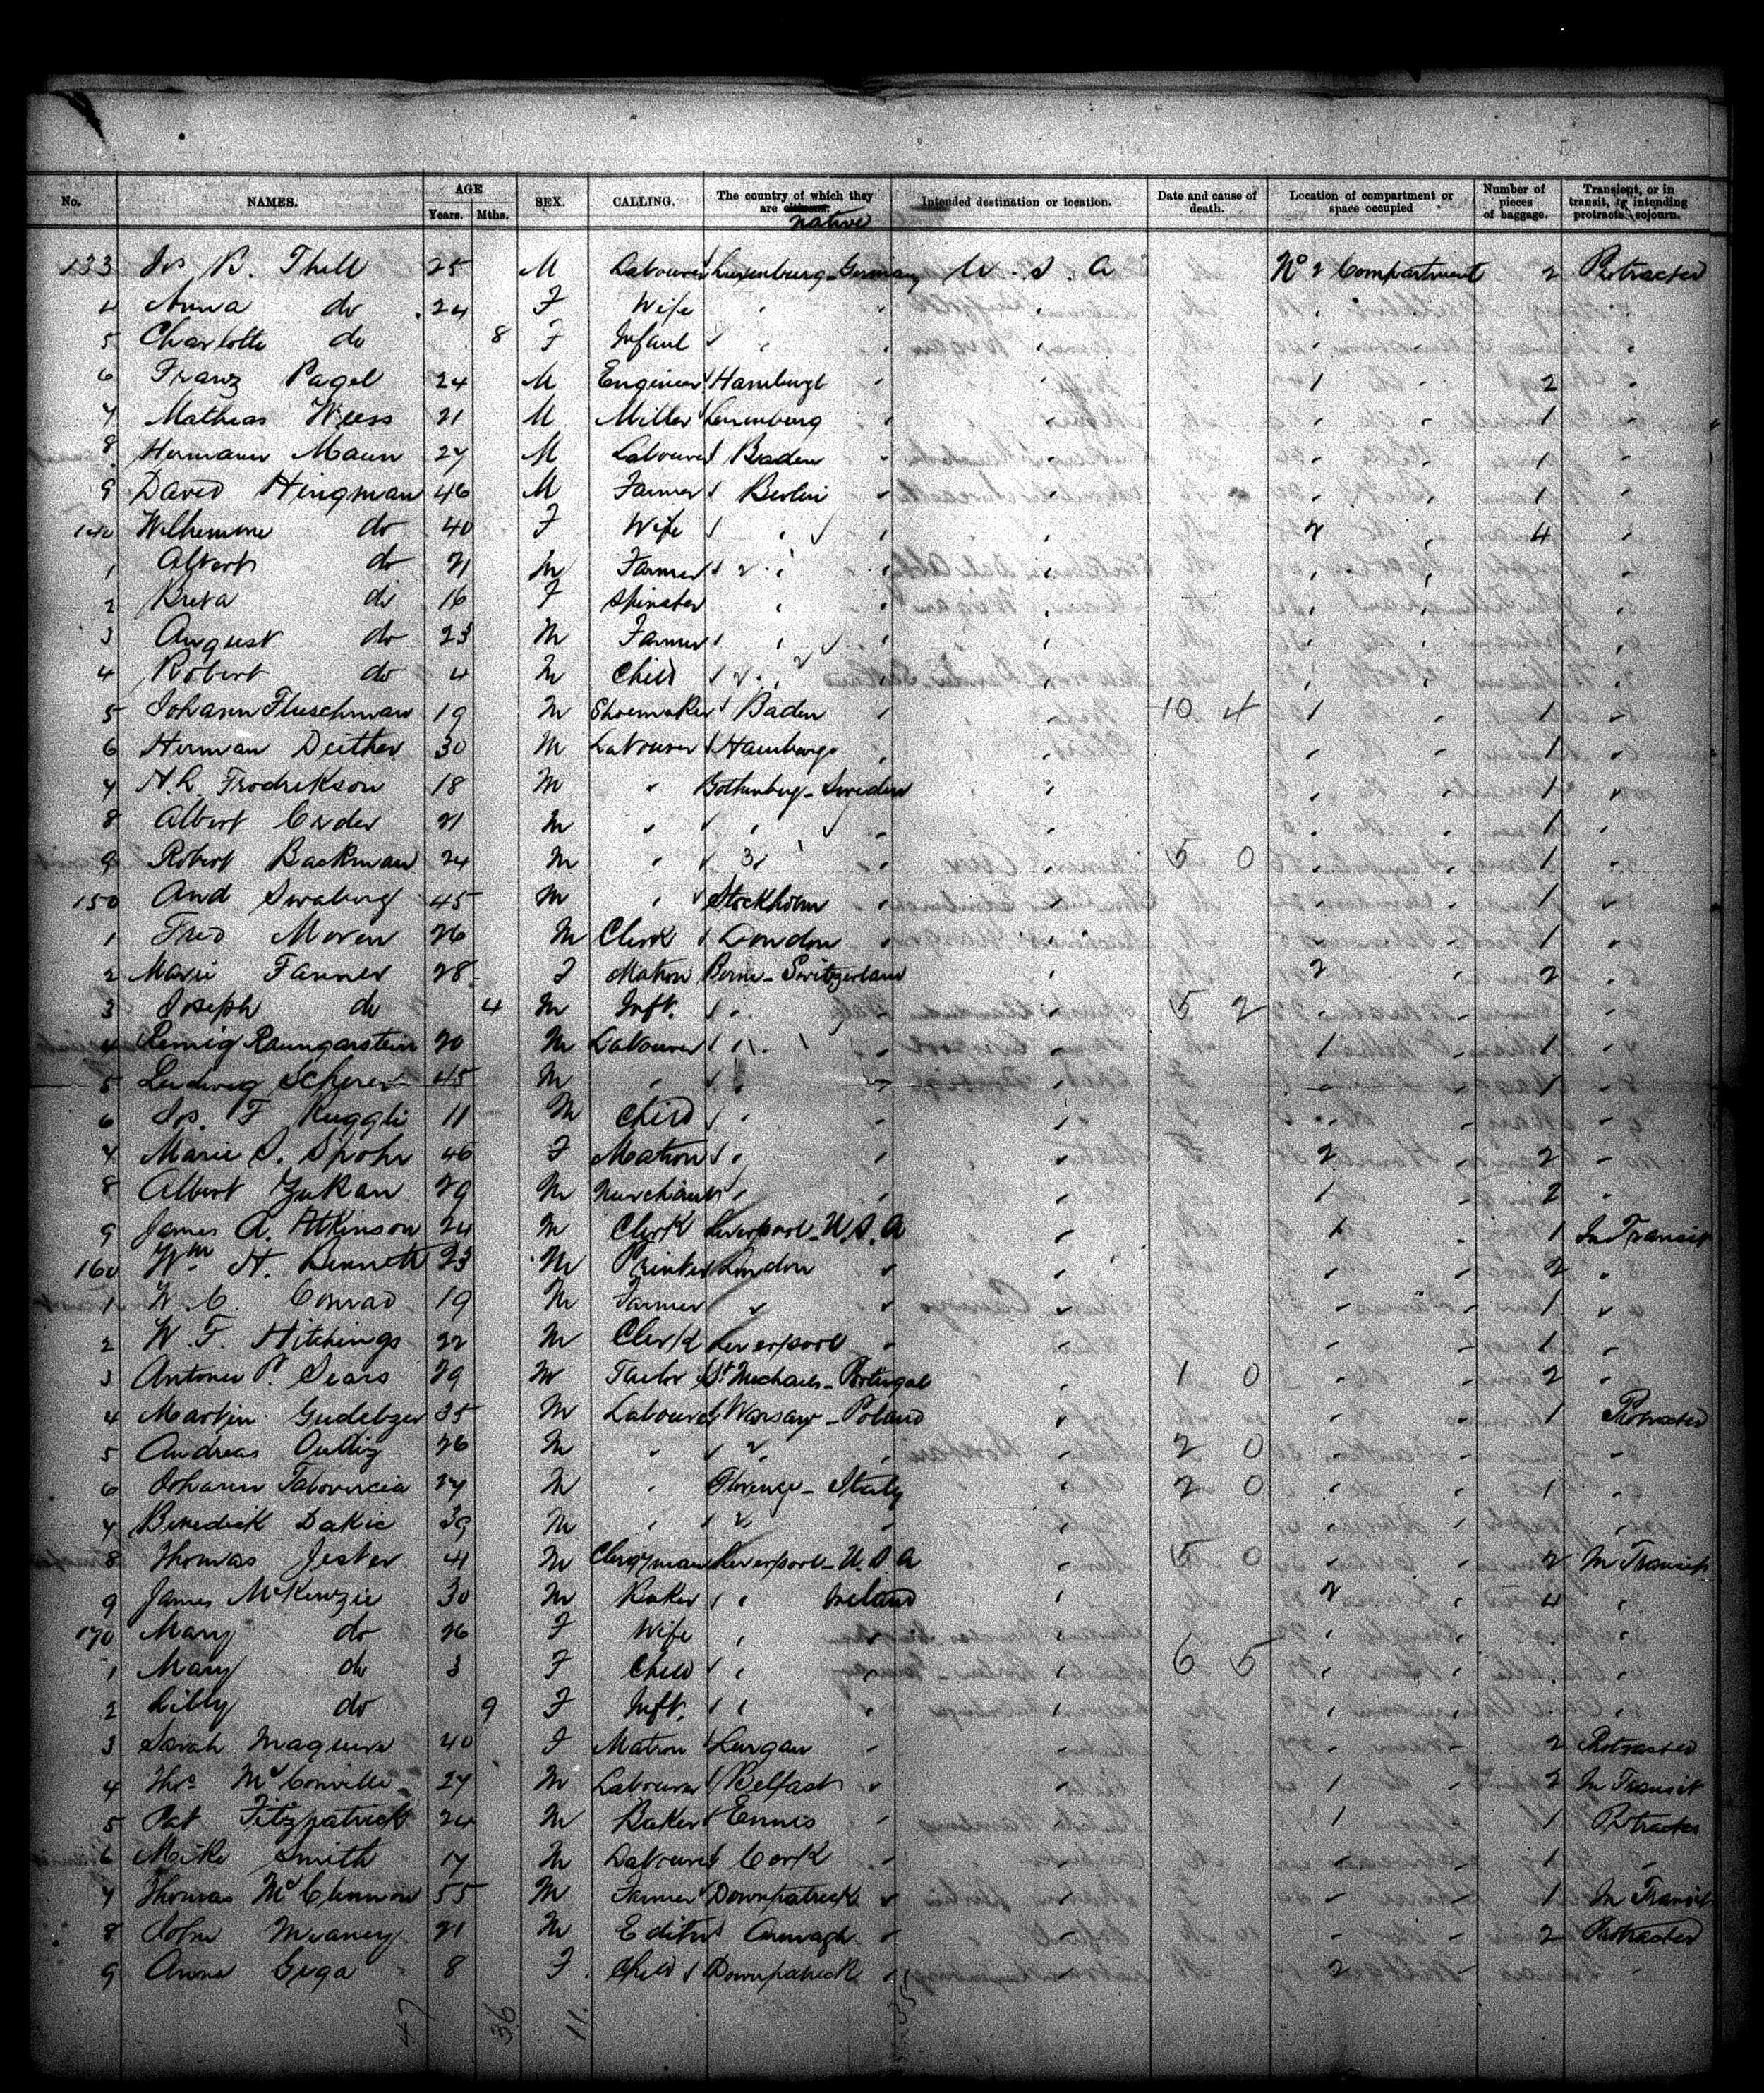 No. NAMES. AGE Years. Mths. SEX. CALLING. The country of which they are citizens. native Intended destination or location. Date and cause of death. Location of compartment or space occupied Number of pieces of baggage. Transient, or in transit, or intending protracted sojourn.
133 Jos B. Thell 25 M Labourer Luxenburg-Germany U.S.A No 2 Compartment 2 Protracted
4 Anna do 24 F Wife
5 Charlotte do 8 F Infant
6 Franz Pagel 24 M Engineer Hamburgh 1 2
7 Mathias Weess 21 M Miller Luxenburg 1
8 Hermann Maun 27 M Labourer Baden 1
9 David Hingman 46 M Farmer Berlin 1
140 Wilhemine do 40 F Wife 2 4
1 Albert do 21 M Farmer
2 do 16 F Spinster
3 August do 23 M Farmer
4 Robert do 4 M Child
5 Johann Fluschman 19 M Shoemaker Baden 10 4 1 1
6 Herman Deither 30 M Labourer Hamburg 1
7 A.L. Frodrikson 18 M " Gothenburg-Sweden 1
8 Albert 21 M " 1
9 Robert Backman 24 M " 5 0 1
150 And Swaberg 45 M " Stockholm 1
1 Theo Moren 26 M Clerk London 1
2 Marie Tanner 28 F Matron Berne-Switzerland 2 2
3 Joseph do 4 M Inft. 5 2
4 Remig Baumgarstein 20 M Labourer 1 1
5 Ludwig Scherer 45 M " 1
6 Jos. F Ruggli 11 M Child
7 Marie S. Spohr 46 F Matron 2 2
8 Albert Zukan 29 M Merchant 1 2
9 James A. Atkinson 24 M Clerk Liverpool-U.S.A 1 1 In Transit
160 Wm H. Bennett 23 M Printer London 2
1 W.C. Conrad 19 M Farmer " 1
2 W.F. Hitchings 22 M Clerk Liverpool 1
3 Antonio P. Sears 29 M Tailor St Michaels-Portugal 1 0 2
4 Martin Gudebzer 35 M Labourer Warsaw-Poland 1 Protracted
5 Andreas 26 M " 2 0
6 Johann Tabovircia 27 M " Florence-Italy 2 0 1
7 Benedick Dakic 39 M "
8 Thomas Jester 41 M Clergyman Liverpool-U.S.A 5 0 2 In Transit
9 James McKenzie 30 M Baker Ireland 2 4
170 Mary do 26 F Wife
1 Mary do 3 F Child 6 5
2 Lilly do 9 F Inft.
3 Sarah Maguire 40 F Matron Lurgan 2 Protracted
4 Thos McConville 27 M Labourer Belfast 1 2 In Transit
5 Pat Fitzpatrick 24 M Baker Ennis 1 1 Protracted
6 Mike Smith 17 M Labourer Cork 1
7 Thomas McClennon 55 M Farmer Downpatrick 1 In Transit
8 John Meaney 21 M Editor Armagh 2 Protracted
9 Anne Gega 8 F Child Downpatrick 2
47 36 11.